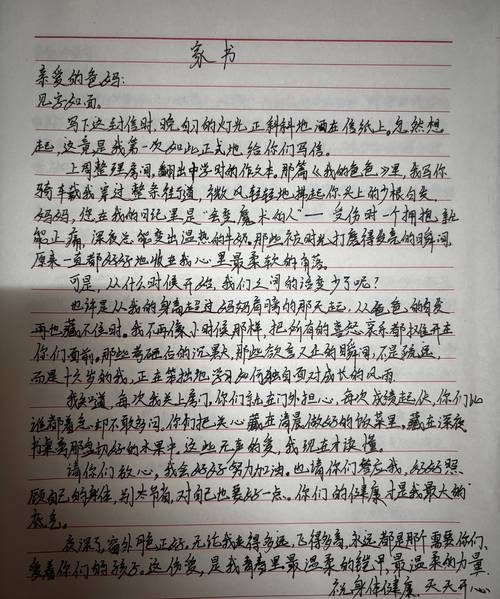 家书
亲爱的爸妈:
见字如面。
写下这封信时,晚自习的灯光正斜斜地洒在信纸上。忽然想
起,这竟是我第一次如此正式地给你们写信。
上周整理房间,翻出中学时的作文本。那篇《我的爸爸》里,我写你
骑车载我穿过整条街道,微风轻轻地拂起你头上的少根白发
妈妈,您在我的日记里是“会变魔术的人”——受伤时一个拥抱就
能止痛,深夜总能变出温热的牛奶。那些被时光打磨得发亮的瞬间,
原来一直都好好地收在我心里最柔软的角落。
可是,从什么时候开始,我们之间的话变少了呢?
也许是从我的身高超过妈妈肩膀的那天起,从爸爸的白发
再也藏不住时。我不再像小时候那样,把所有的喜怒哀乐都摊开在
你们面前。那些背后的沉默,那些欲言又止的瞬间,不是疏远,
而是十六岁的我,正在笨拙地学习如何独自面对成长的风雨
我知道,每次我关上房门,你们就在门外担心,每次成绩起伏,你们
谁都着急却不敢多问。你们把关心藏在清晨做好的饭菜里,藏在深夜
书桌旁那盘切好的水果中。这些无声的爱,我现在才读懂。
请你们放心,我会好好努力加油。也请你们答应我,好好照
顾自己的身体,别太节省,对自己也要好一点。你们的健康才是我最大的
底气。
夜深了,窗外月色正好,无论我走得多远,飞得多高,永远都是那个需要你们、
爱着你们的孩子。这份爱,是我青春里最温柔的铠甲,最温柔的力量
祝身体健康,天天开心